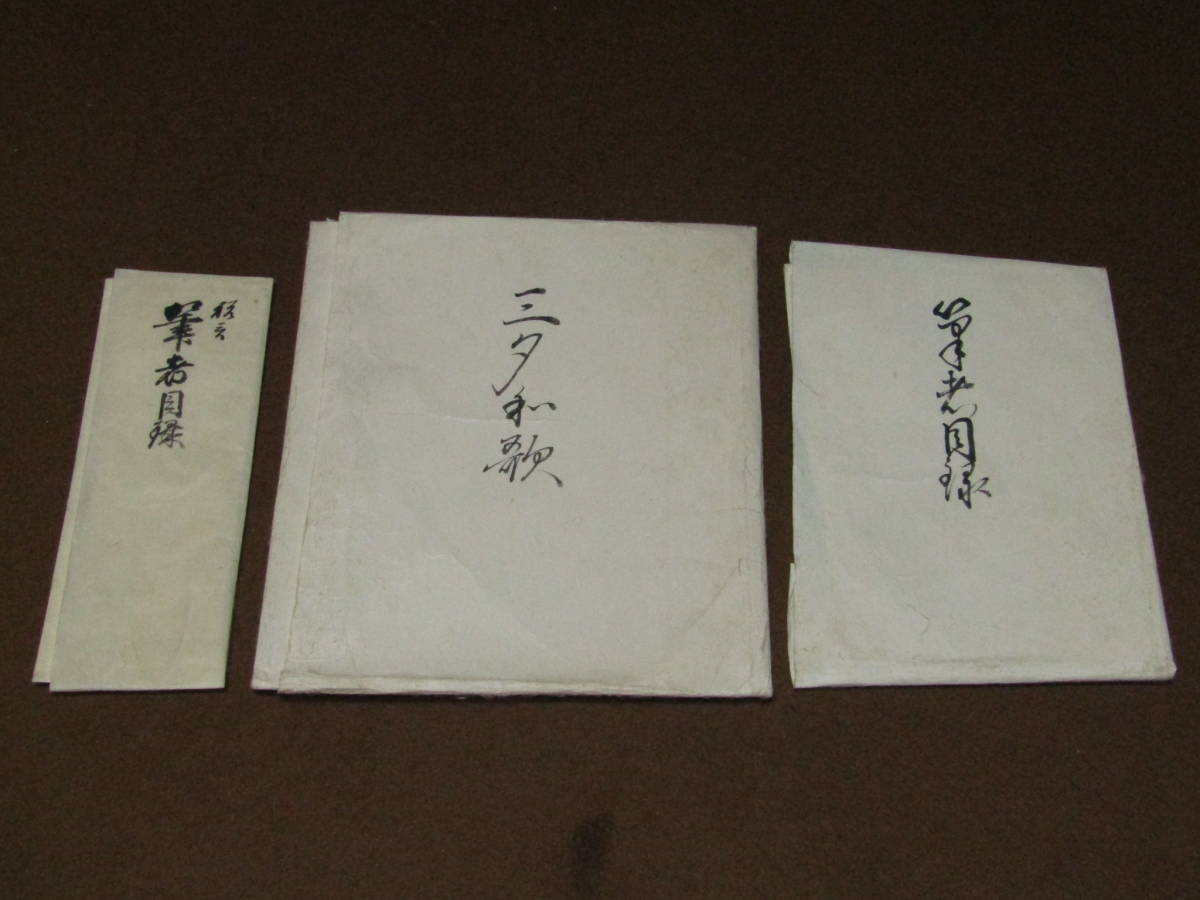 筆者目録
三夕和歌
筆者目録